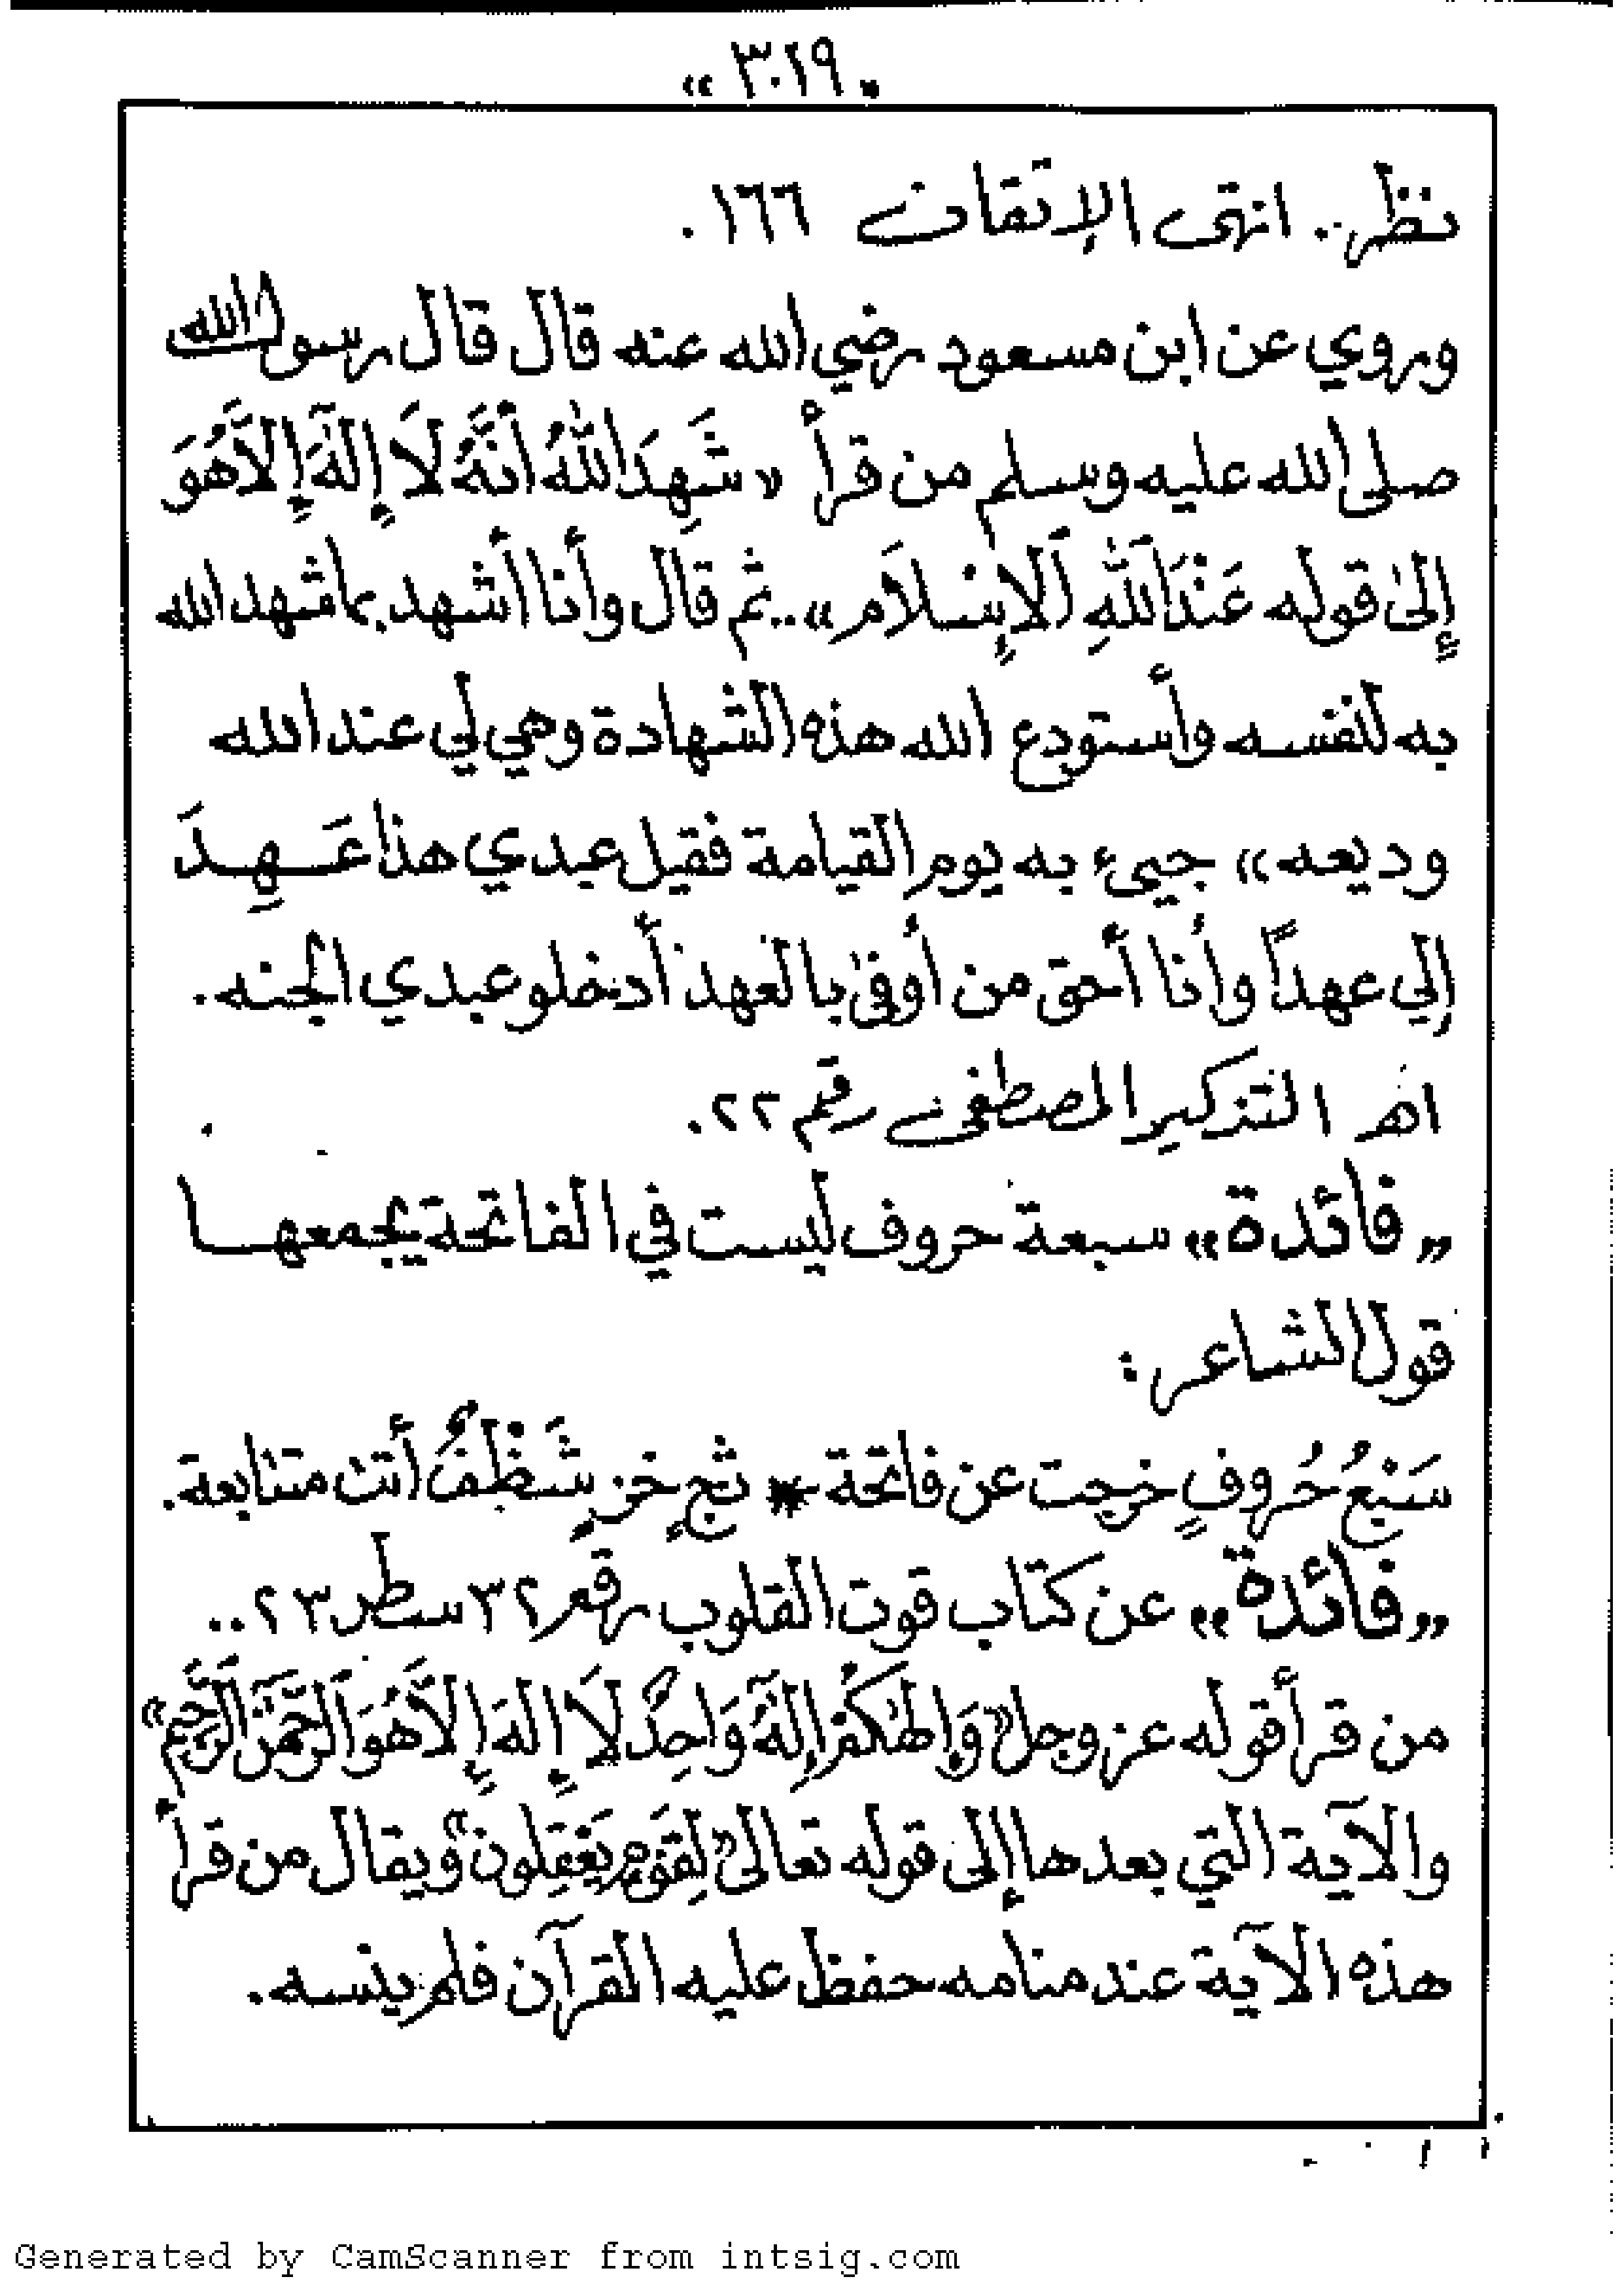 « ٣٠١٩ »
نظر.. انتهى الإتقان ١٦٦ .
وروي عن ابن مسعود رضي الله عنه قال قال رسول الله
صلى الله عليه وسلم من قرأ « شَهِدَ اللهُ أَنَّهُ لَا إِلَهَ إِلاَّ هُوَ
إِلىٰ قوله عَنْدَ اللهِ اَلإِسْلاَم » .. ثم قال وأنا أشهد بما شهد الله
به لنفسه وأستودع الله هذه الشهادة وهي لي عند الله
وديعه » جيىء به يوم القيامة فقيل عبدي هذا عَهِدَ
إلي عهداً وأنا أحق من أوفىٰ بالعهد أدخلو عبدي الجنه .
اهـ التذكير المصطفى رقم ٢٢ .
« فائدة » سبعة حروف ليست في الفاتحة يجمعها
قول الشاعر :
سَبْعُ حُروفٍ خرجت عن فاتحة * ثجٍ خزٍ شَظْفٌ أتت متتابعة .
« فائدة » عن كتاب قوت القلوب رقم ٣٢ سطر ٢٣ ..
من قرأ قوله عز وجل « وَإِلهُكُمْ إِلهٌ وَاحِدٌ لَا إِلهَ إِلاَّ هُوَ اَلرَّحْمَنُ اَلرَّحِيم »
والآية التي بعدها إلى قوله تعالى « لِقَوْمٍ يَعْقِلون » ويقال من قرأ
هذه الآية عند منامه حفظ عليه القرآن فلم ينسه .
Generated by CamScanner from intsig.com